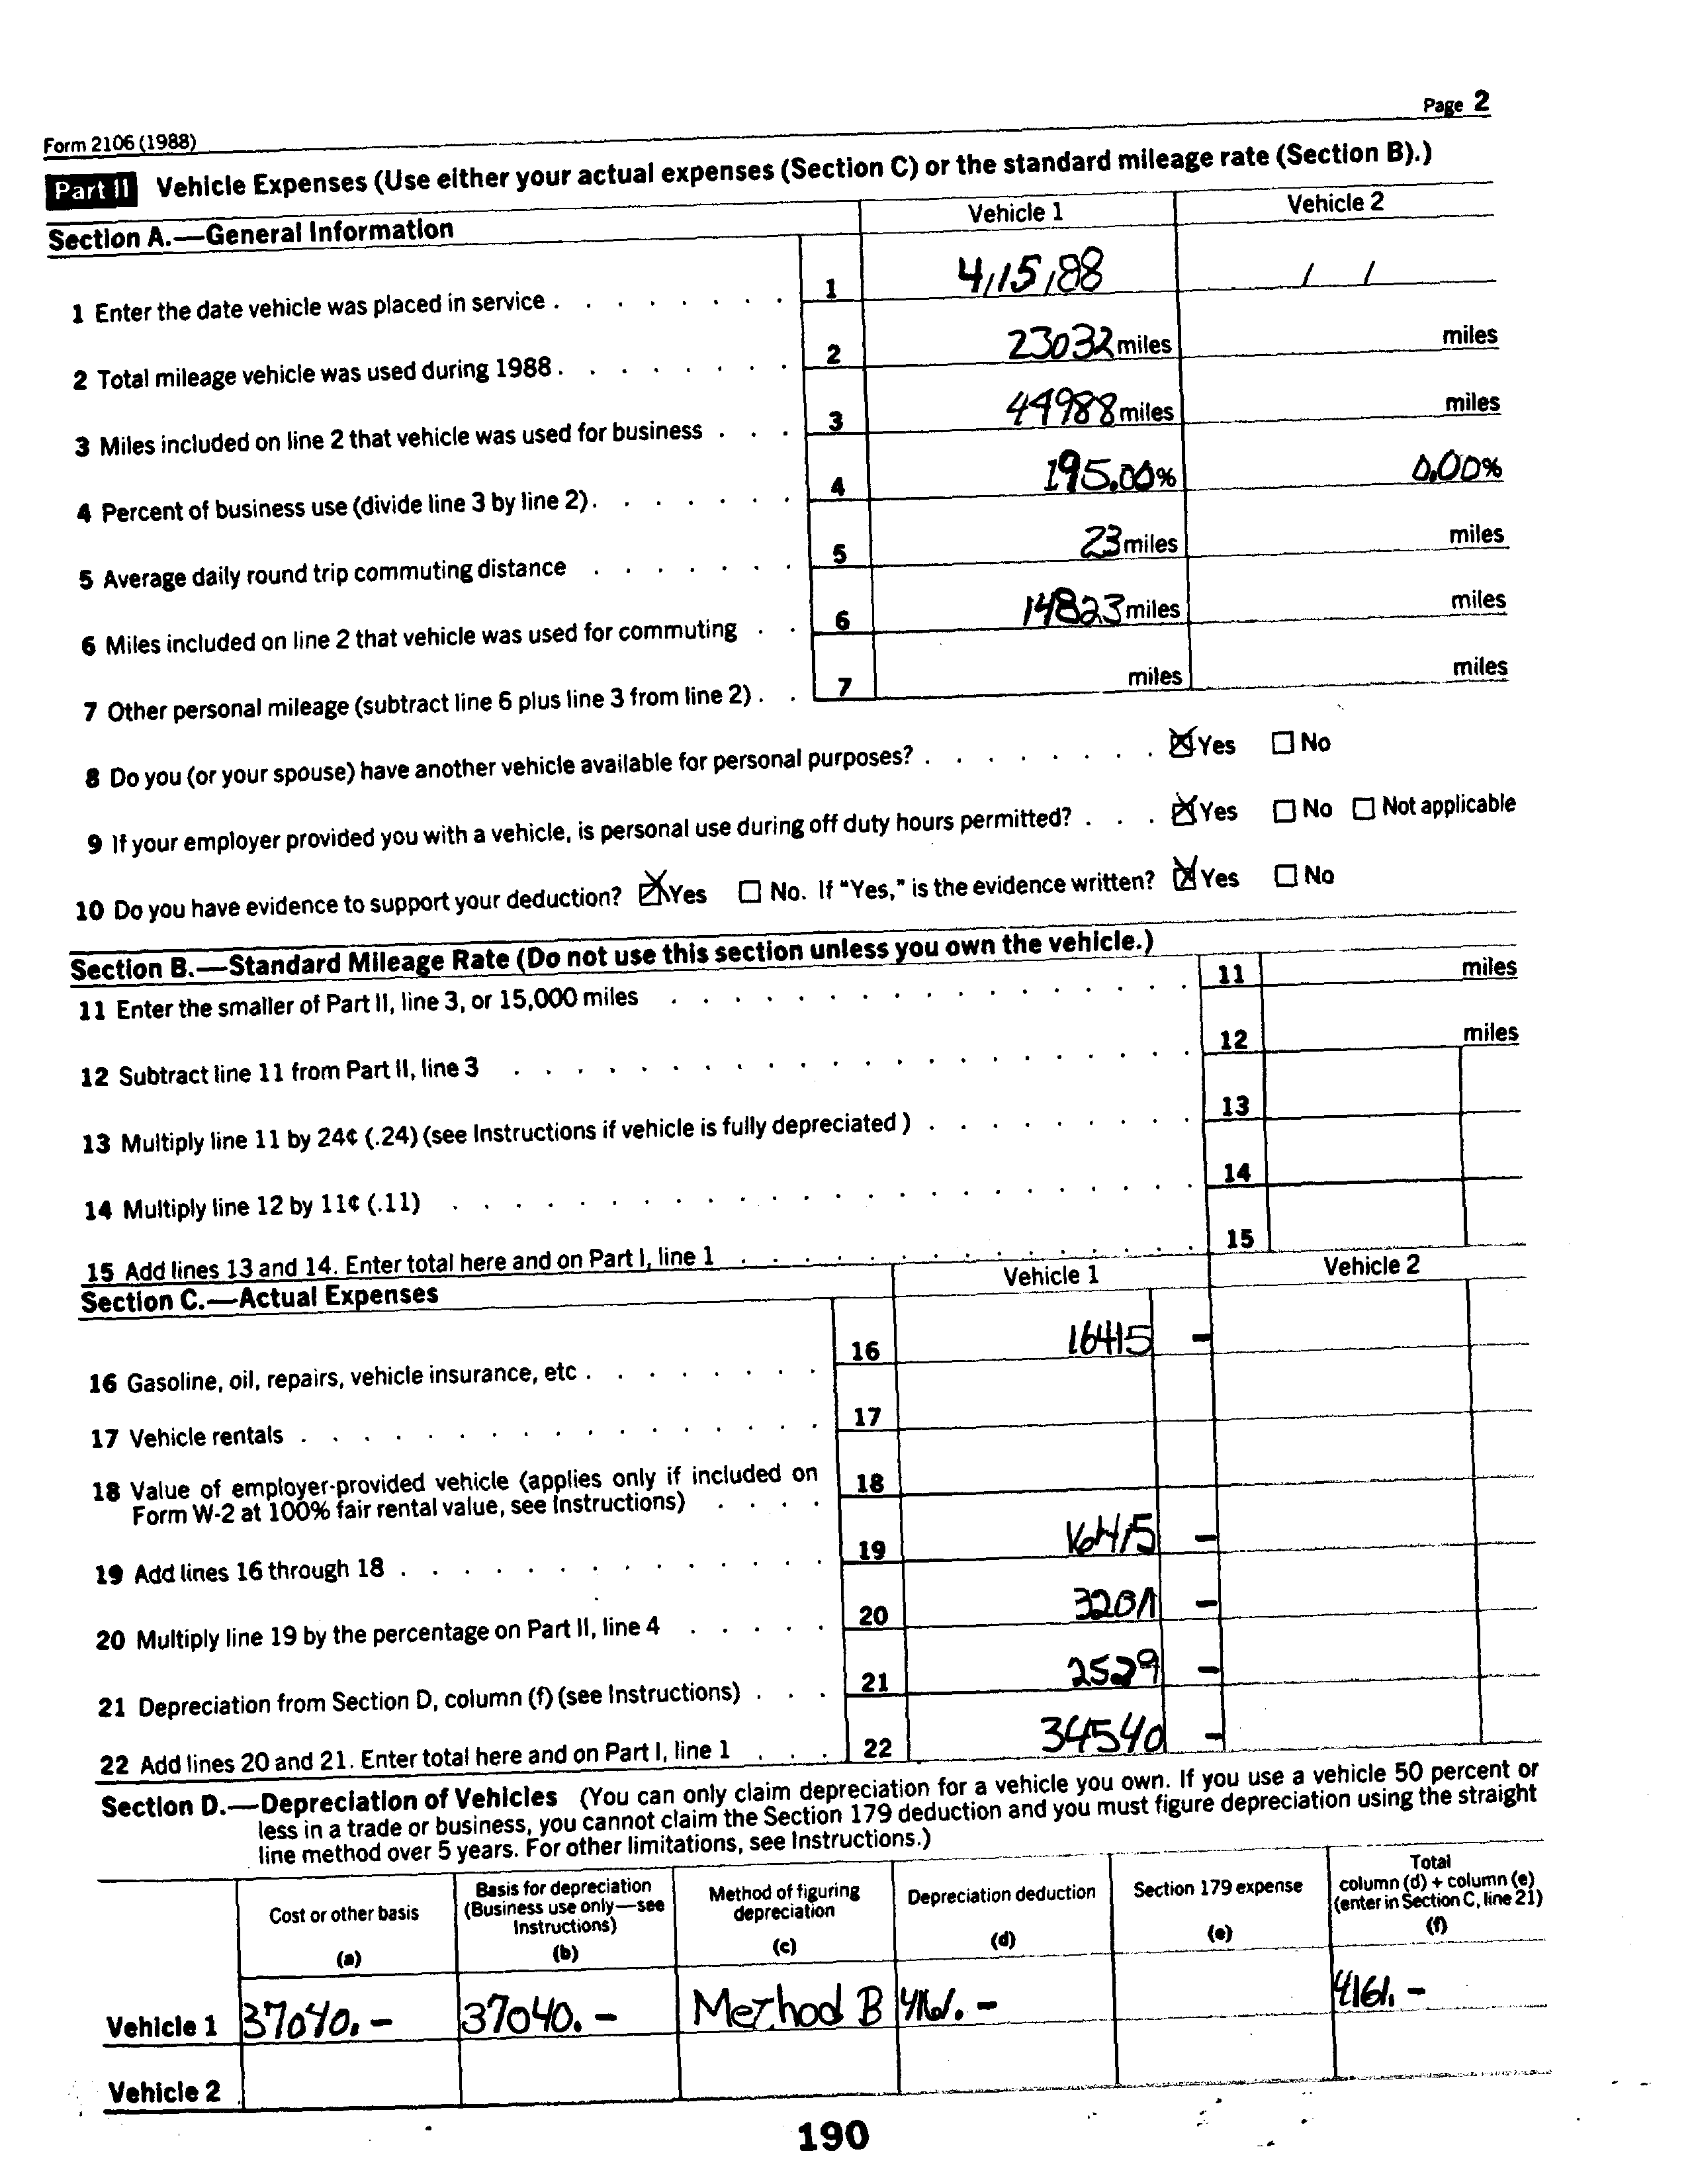 Page 2
Form 2106 (1988)
Part II Vehicle Expenses (Use either your actual expenses (Section C) or the standard mileage rate (Section B).)
Section A.—General Information Vehicle 1 Vehicle 2
1 Enter the date vehicle was placed in service 1 4/15/88 / /
2 Total mileage vehicle was used during 1988 2 23032 miles miles
3 Miles included on line 2 that vehicle was used for business 3 44988 miles miles
4 Percent of business use (divide line 3 by line 2) 4 195.00% 0.00%
5 Average daily round trip commuting distance 5 23 miles miles
6 Miles included on line 2 that vehicle was used for commuting 6 14823 miles miles
7 Other personal mileage (subtract line 6 plus line 3 from line 2) 7 miles miles
8 Do you (or your spouse) have another vehicle available for personal purposes? ☒ Yes ☐ No
9 If your employer provided you with a vehicle, is personal use during off duty hours permitted? ☒ Yes ☐ No ☐ Not applicable
10 Do you have evidence to support your deduction? ☒ Yes ☐ No. If "Yes," is the evidence written? ☒ Yes ☐ No
Section B.—Standard Mileage Rate (Do not use this section unless you own the vehicle.)
11 Enter the smaller of Part II, line 3, or 15,000 miles 11 miles
12 Subtract line 11 from Part II, line 3 12 miles
13 Multiply line 11 by 24¢ (.24) (see Instructions if vehicle is fully depreciated) 13
14 Multiply line 12 by 11¢ (.11) 14
15 Add lines 13 and 14. Enter total here and on Part I, line 1 15
Section C.—Actual Expenses Vehicle 1 Vehicle 2
16 Gasoline, oil, repairs, vehicle insurance, etc 16 16415 -
17 Vehicle rentals 17
18 Value of employer-provided vehicle (applies only if included on
Form W-2 at 100% fair rental value, see Instructions) 18
19 Add lines 16 through 18 19 16415 -
20 Multiply line 19 by the percentage on Part II, line 4 20 -
21 Depreciation from Section D, column (f) (see Instructions) 21 2529 -
22 Add lines 20 and 21. Enter total here and on Part I, line 1 22 34540 -
Section D.—Depreciation of Vehicles (You can only claim depreciation for a vehicle you own. If you use a vehicle 50 percent or
less in a trade or business, you cannot claim the Section 179 deduction and you must figure depreciation using the straight
line method over 5 years. For other limitations, see Instructions.)
Cost or other basis (a)
Basis for depreciation (Business use only—see Instructions) (b)
Method of figuring depreciation (c)
Depreciation deduction (d)
Section 179 expense (e)
Total column (d) + column (e) (enter in Section C, line 21) (f)
Vehicle 1 37040.- 37040.- Method B 4161.- 4161.-
Vehicle 2
190